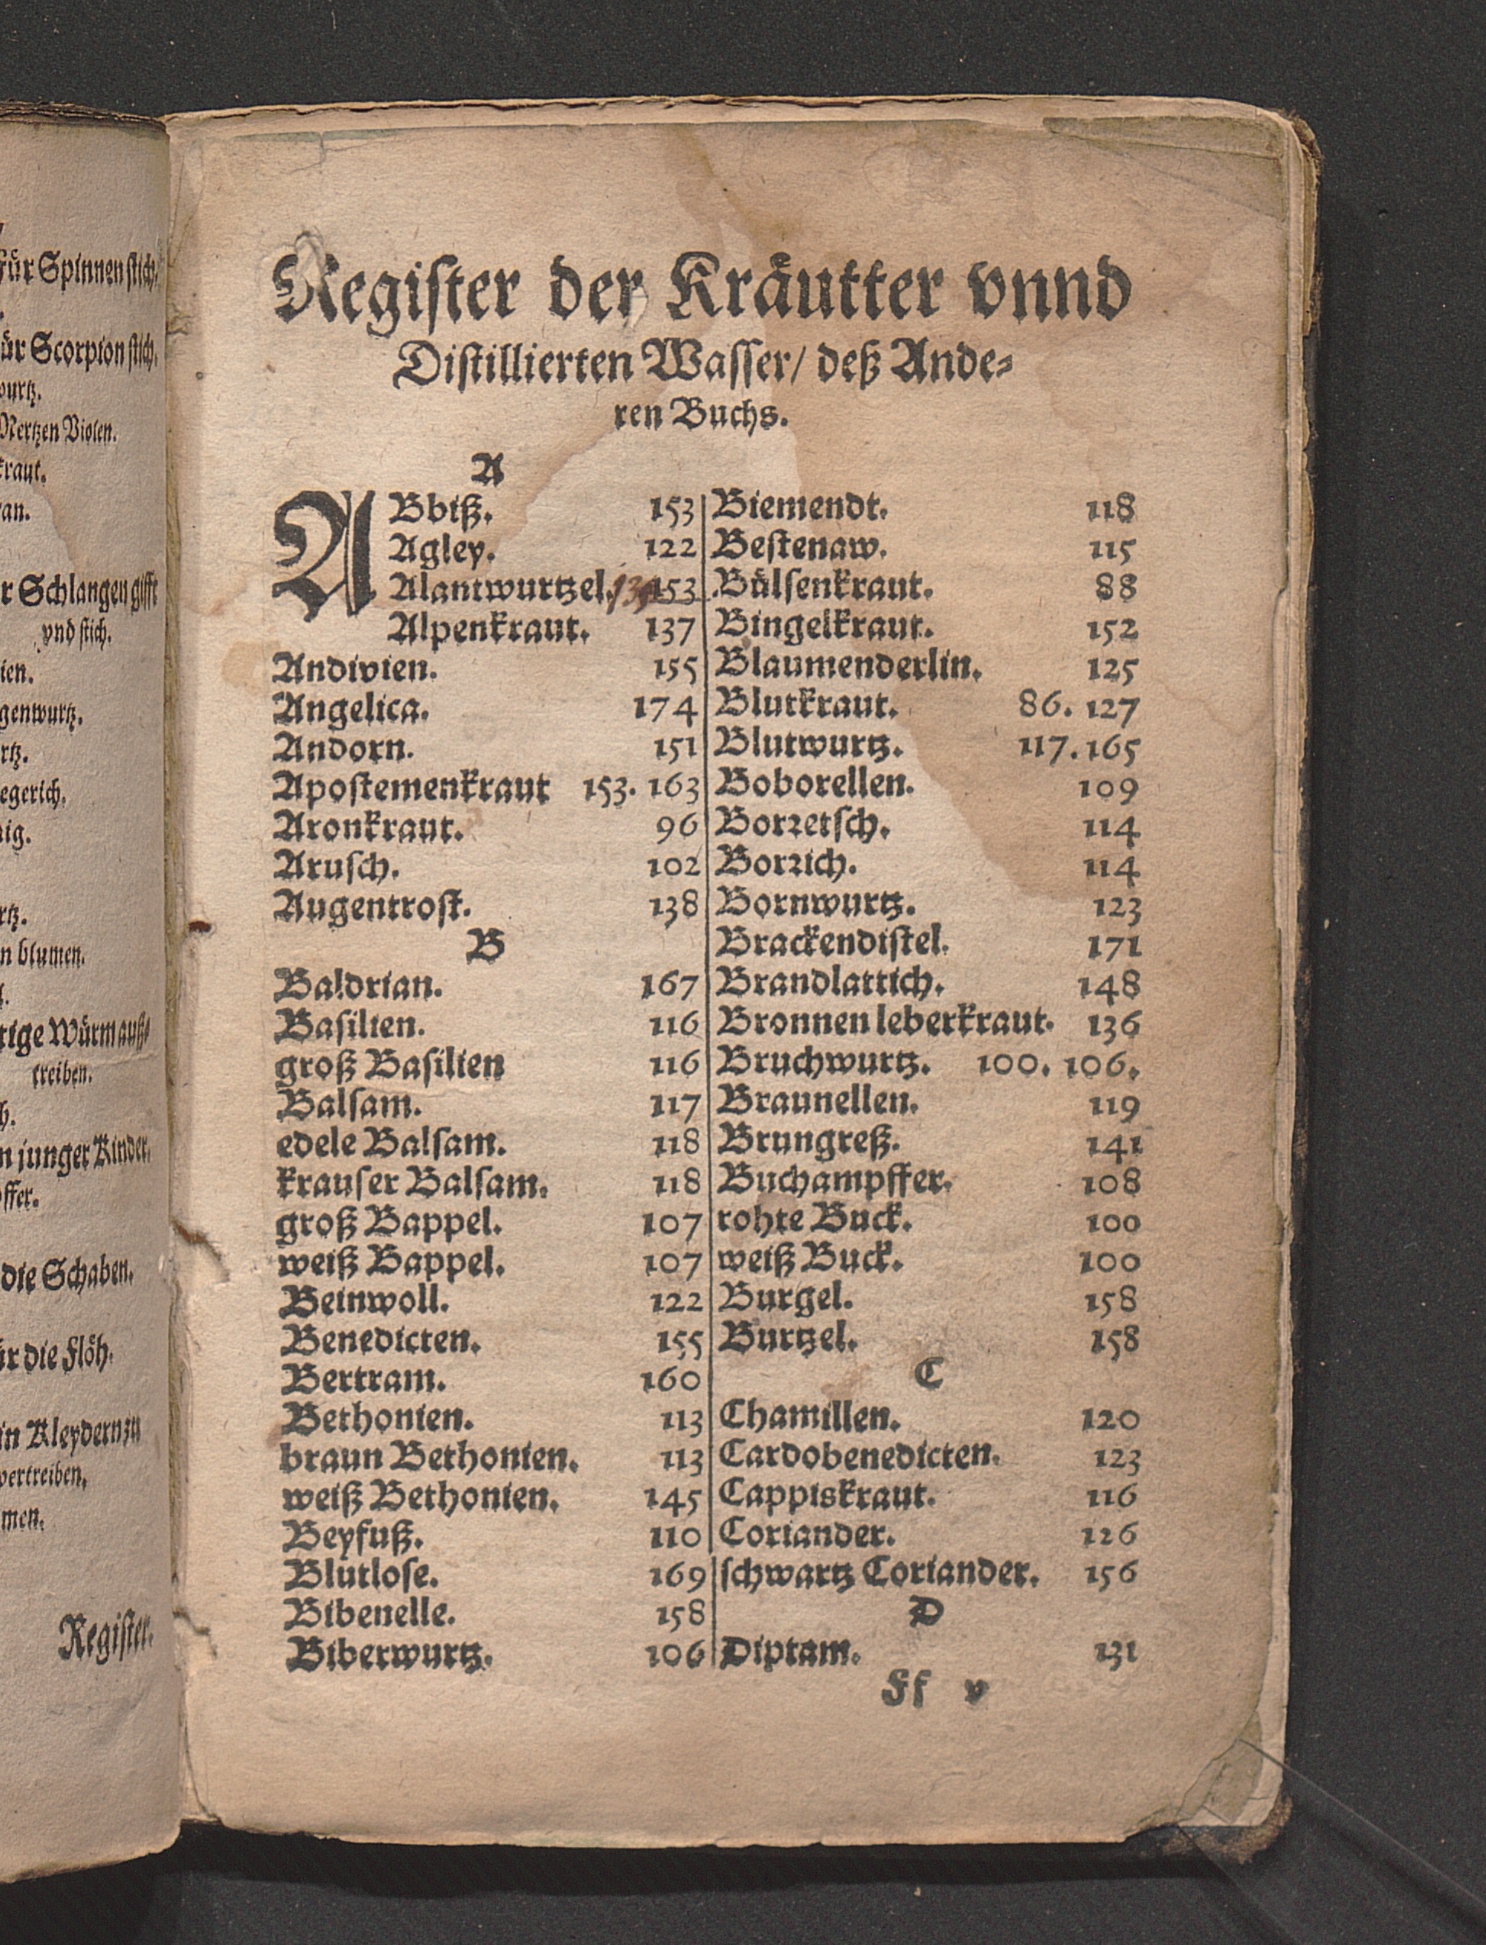 für Spinnen stich.
für Scorpion stich.
wurtz.
Mertzen Violen.
kraut.
an.
r Schlangen gifft
vnd stich.
ien.
genwurtz.
rtz.
egerich.
nig.
rtz.
n blumen.
tige Würm auß⸗
treiben.
h.
n junger Kinder.
ffer.
die Schaben.
ür die Flöh.
in Kleydern zu
vertreiben.
men.
Register.
Register der Kräutter vnnd
Distillierten Wasser/ deß Ande⸗
ren Buchs.
A
ABbiß. 153
Agley. 122
Alantwurtzel. 153
Alpenkraut. 137
Andivien. 155
Angelica. 174
Andorn. 151
Apostemenkraut 153. 163
Aronkraut. 96
Arusch. 102
Augentrost. 138
B
Baldrian. 167
Basilien. 116
groß Basilien 116
Balsam. 117
edele Balsam. 118
krauser Balsam. 118
groß Bappel. 107
weiß Bappel. 107
Beinwoll. 122
Benedicten. 155
Bertram. 160
Bethonien. 113
braun Bethonien. 113
weiß Bethonien. 145
Beyfuß. 110
Blutlose. 169
Bibenelle. 158
Biberwurtz. 106
Biemendt. 118
Bestenaw. 115
Bülsenkraut. 88
Bingelkraut. 152
Blaumenderlin. 125
Blutkraut. 86. 127
Blutwurtz. 117. 165
Boborellen. 109
Borretsch. 114
Borrich. 114
Bornwurtz. 123
Brackendistel. 171
Brandlattich. 148
Bronnen leberkraut. 136
Bruchwurtz. 100. 106.
Braunellen. 119
Brungreß. 141
Buchampffer. 108
rohte Buck. 100
weiß Buck. 100
Burgel. 158
Burtzel. 158
C
Chamillen. 120
Cardobenedicten. 123
Cappiskraut. 116
Coriander. 126
schwartz Coriander. 156
D
Diptam. 131
Ff v